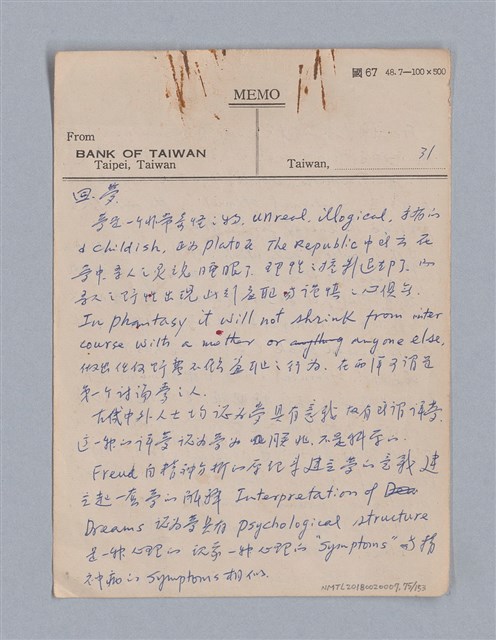 國 67 48.7—100×500
MEMO
From
BANK OF TAIWAN
Taipei, Taiwan
Taiwan, 31
四. 夢
夢是一个非常奇怪之物, unreal, illogical,
& childish, Plato 在 The Republic 中
夢中, 睡眠了. 理性之控制退却了,
出現 羞恥与謹慎之心俱失.
In phantasy it will not shrink from inter
course with a mother or anything anyone else,
做出任何 不知羞恥之行为. 在西洋可謂是
第一个討論夢之人.
古代中外人士均認为夢具有意義, 故有所謂詳夢.
這一般的詳夢認为夢为 兆, 不是科学的.
Freud 由精神分析的 建立夢的意義, 建
立起一套夢的解釋 Interpretation of
Dreams 認为夢具有 psychological structure
是一种心理的 一种心理的 "symptoms" 与精
神病的 symptoms 相似.
NMTL20180020007, 75/153